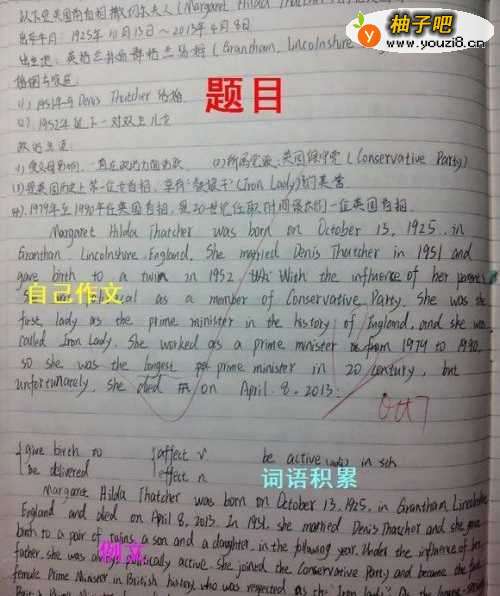 柚子吧
www.youzi8.cn
以下是英国前首相撒切尔夫人(Margaret Hilda Thatcher)
出生年月: 1925年10月13日~2013年4月8日
(Grantham, Lincolnshire
题目
(1) 1951年与Denis Thatcher结婚
(2) 1952年 下一对双
政治生涯
英国保守党 (Conservative Party)
(3) 是英国历史上第一位女首相, 享有"铁娘子"(Iron Lady)的美誉
(4) 1979年至1990年任英国首相, 是20世纪任职时间最长的一位英国首相.
Margaret Hilda Thatcher was born on October 13, 1925, in
Granthan, Lincolnshire, England. She married Denis Thatcher in 1951 and
gave birth to a twin in 1952. With the influence of her parents
自己作文
as a member of Conservative Party. She was the
first lady as the prime minister in the history of England, and she was
called Iron Lady. She worked as a prime minister from 1979 to 1990,
so she was the longest prime minister in 20 century, but
unfortunately, she died on April. 8, 2013.
give birth to affect v be active in
be delivered effect n
词语积累
Margaret Hilda Thatcher was born on October 13, 1925, in Grantham Lincolnshire
England and died on April 8, 2013. In 1951, she married Denis Thatcher and she gave
birth to a pair of twins, a son and a daughter, in the following year. Under the influence of her
father, she was always politically active. She joined the Conservative Party and became the first
范文
female Prime Minister in British history, who was respected as the "Iron Lady".